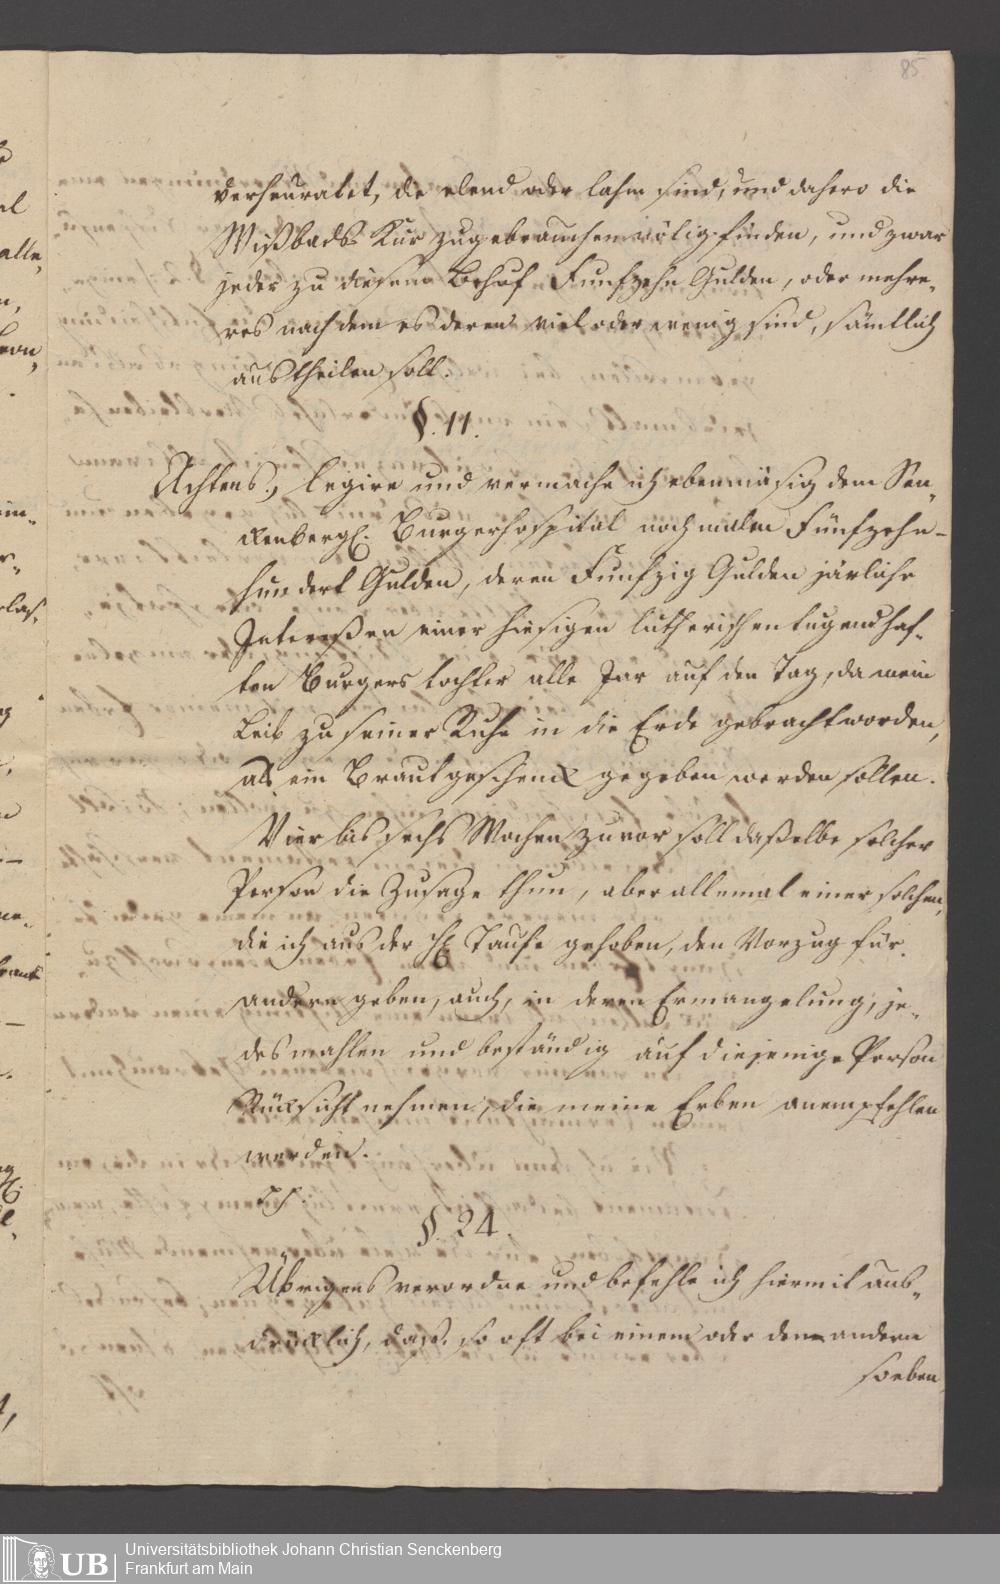 85
verheuratet, die elend oder lahm sind, und dahero die
Wißbads Kur zugebrauchen nötig finden, und zwar
jedes zu diesem Behuf Funfzehn Gulden, oder mehre„
res nach dem es deren viel oder wenig sind, sämtlich
austheilen soll.
§. 11.
Achtens, legire und vermache ich ebenmäsig dem Sen„
ckenbergl. Burgerhospital nochmalen Fünfzehn-
hundert Gulden, deren Funfzig Gulden järliche
Intereßen einer hiesigen lutherischen tugendhaf„
ten Burgers tochter alle Jar auf den Tag, da mein
Leib zu seiner Ruhe in die Erde gebracht worden,
als ein Brautgeschenck gegeben werden sollen.
Vier bis sechs Wochen zuvor soll daßelbe solcher
Person die Zusage thun, aber allemal einer solchen,
die ich aus der hl. Taufe gehoben, den Vorzug für
andern geben, auch, in deren Ermangelung, je„
desmahlen und beständig auf diejenige Person
Rücksicht nehmen, die meine Erben anempfehlen
werden.
§. 24.
Übrigens verordne und befehle ich hiermit aus„
drücklich, daß, so oft bei einem oder dem andern
soeben
Universitätsbibliothek Johann Christian Senckenberg
Frankfurt am Main
UB